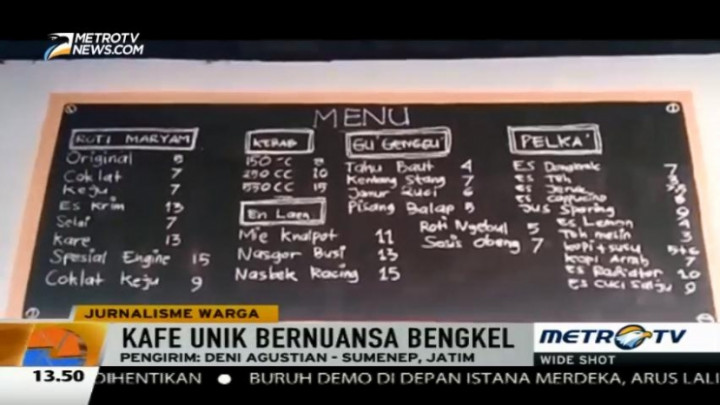 METROTV
NEWS.COM
MENU
ROTI MARYAM
Original 5
Coklat 7
Keju 7
Es Krim 13
Selai 7
Kare 13
Spesial Engine 15
Coklat Keju 9
KEBAB
150 CC 8
250 CC 10
550 CC 15
En Laen
Mie Knalpot 11
Nasgor Busi 13
Nasbek Racing 15
GU GENGGU
Tahu Baut 4
Kentang Stang 7
Jamur Ruci 6
Pisang Balap 5
Roti Ngebul 5
Sosis Obeng 7
PELKA'
ES Dongkrak 7
ES Teh 3
ES Jeruk
ES Cappucino
Jus Sporing 9
ES Lemon 4
Teh melin 3
kopi + susu 5+6
kopi Arab 7
ES Radiator 10
ES Cuci Salju 9
JURNALISME WARGA
KAFE UNIK BERNUANSA BENGKEL
PENGIRIM: DENI AGUSTIAN - SUMENEP, JATIM
METRO TV
WIDE SHOT
13.50 DIHENTIKAN ● BURUH DEMO DI DEPAN ISTANA MERDEKA, ARUS LALI